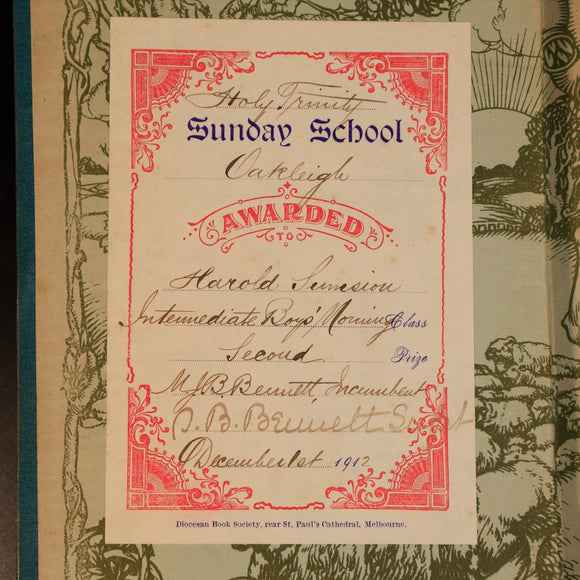 Holy Trinity
Sunday School
Oakleigh
AWARDED
TO
Harold
Intermediate Boys' Morning Class
Second Prize
M J B Bennett, Incumbent
B. Bennett Supt
December 1st 1912
Diocesan Book Society, rear St. Paul's Cathedral, Melbourne.